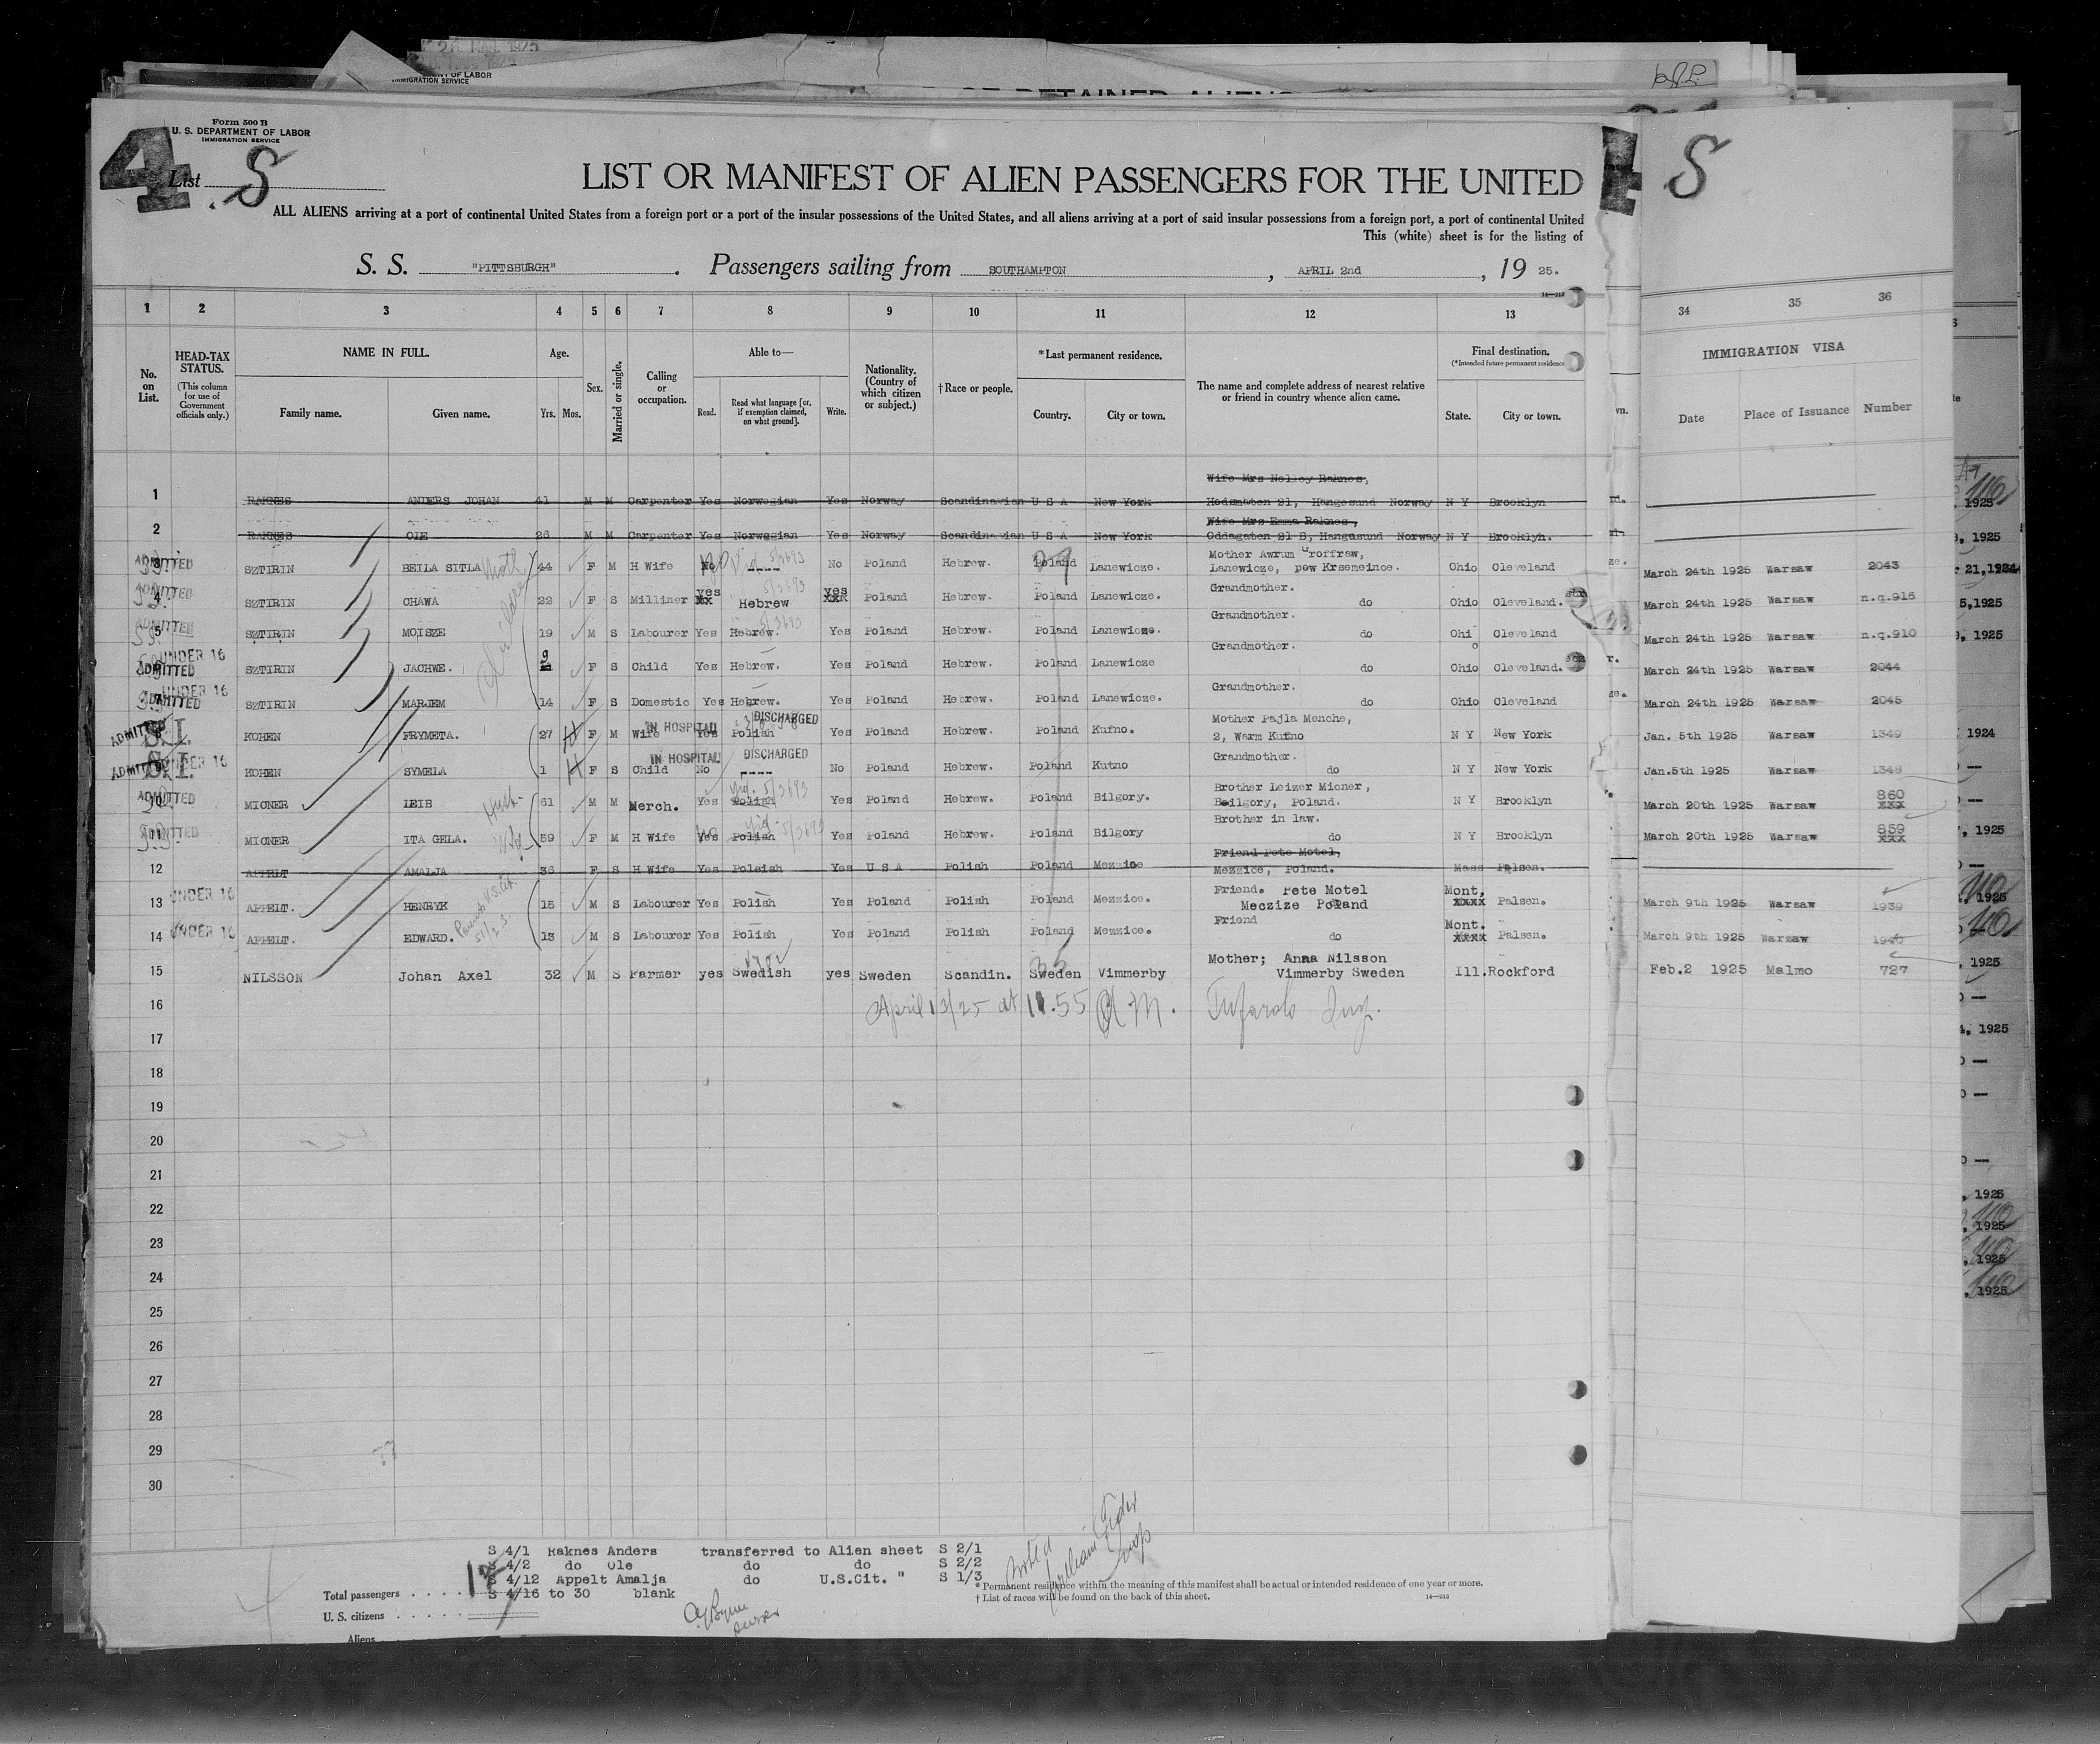 26 MAR 1925
NT OF LABOR
IMMIGRATION SERVICE
Form 500 B
U. S. DEPARTMENT OF LABOR
IMMIGRATION SERVICE
4
List S
S
LIST OR MANIFEST OF ALIEN PASSENGERS FOR THE UNITED
ALL ALIENS arriving at a port of continental United States from a foreign port or a port of the insular possessions of the United States, and all aliens arriving at a port of said insular possessions from a foreign port, a port of continental United
This (white) sheet is for the listing of
S. S. "PITTSBURGH". Passengers sailing from SOUTHAMPTON, APRIL 2nd, 19 25.
1 2 3 4 5 6 7 8 9 10 11 12 13 34 35 36
No. on List.
HEAD-TAX STATUS.
(This column for use of Government officials only.)
NAME IN FULL.
Family name. Given name.
Age.
Yrs. Mos.
Sex.
Married or single.
Calling or occupation.
Able to—
Read. Read what language [or, if exemption claimed, on what ground]. Write.
Nationality. (Country of which citizen or subject.)
†Race or people.
*Last permanent residence.
Country. City or town.
The name and complete address of nearest relative or friend in country whence alien came.
Final destination.
(*Intended future permanent residence
State. City or town.
IMMIGRATION VISA
Date Place of Issuance Number
Wife Mrs Nelley Raknes,
1 RAKNES ANDERS JOHAN 41 M M Carpenter Yes Norwegian Yes Norway Scandinavian U S A New York Hodsmäten 21, Hangesund Norway N Y Brooklyn
Wife Mrs Emma Raknes,
2 RAKNES OLE 26 M M Carpenter Yes Norwegian Yes Norway Scandinavian U S A New York Oddagaten 21 B, Hangusund Norway N Y Brooklyn.
Mother Awrum Groffraw,
3 ADMITTED SZTIRIN BEILA SITLA 44 F M H Wife No ---- No Poland Hebrew. Poland Lanewicze. Lanewicze, pow Krsemeince. Ohio Cleveland March 24th 1925 Warsaw 2043
Grandmother.
4 ADMITTED SZTIRIN CHAWA 22 F S Milliner yes Hebrew yes Poland Hebrew. Poland Lanewicze. do Ohio Cleveland. March 24th 1925 Warsaw n.q.916
Grandmother.
5 ADMITTED SZTIRIN MOISZE 19 M S Labourer Yes Hebrew. Yes Poland Hebrew. Poland Lanewicze. do Ohi Cleveland March 24th 1925 Warsaw n.q.910
Grandmother. o
6 UNDER 16 ADMITTED SZTIRIN JACHWE. 9 F S Child Yes Hebrew. Yes Poland Hebrew. Poland Lanewicze do Ohio Cleveland. March 24th 1925 Warsaw 2044
Grandmother.
7 UNDER 16 ADMITTED SZTIRIN MARJEM 14 F S Domestic Yes Hebrew. Yes Poland Hebrew. Poland Lanewicze. do Ohio Cleveland March 24th 1925 Warsaw 2045
IN HOSPITAL DISCHARGED
Mother Pajla Menche,
ADMITTED S.I. KOHEN FRYMETA. 27 H F M Wife Yes Polish Yes Poland Hebrew. Poland Kufno. 2, Warm Kufno N Y New York Jan. 5th 1925 Warsaw 1349
IN HOSPITAL DISCHARGED
Grandmother.
ADMITTED S.I. UNDER 16 KOHEN SYMELA 1 H F S Child No ---- No Poland Hebrew. Poland Kutno do N Y New York Jan.5th 1925 Warsaw 1348
Brother Leizer Micner,
10 ADMITTED MICNER LEIB 61 M M Merch. Yes Polish Yes Poland Hebrew. Poland Bilgory. Bailgory, Poland. N Y Brooklyn March 20th 1925 Warsaw 860 xxx
Brother in law.
11 ADMITTED MICNER ITA GELA. 59 F M H Wife Yes Polish Yes Poland Hebrew. Poland Bilgory do N Y Brooklyn March 20th 1925 Warsaw 859 xxx
Friend Pete Motel,
12 APPELT AMALJA 36 F S H Wife Yes Poleish Yes U S A Polish Poland Mezzice Mezzice, Poland. Mass Palsen.
Friend. Pete Motel Mont.
13 UNDER 16 APPELT. HENRYK 15 M S Labourer Yes Polish Yes Poland Polish Poland Mezzice. Meczize Poland xxxx Palsen. March 9th 1925 Warsaw 1939
Friend Mont.
14 UNDER 16 APPELT. EDWARD. 13 M S Labourer Yes Polish Yes Poland Polish Poland Mezzice. do xxxx Palsen. March 9th 1925 Warsaw 1940
Mother; Anna Nilsson
15 NILSSON Johan Axel 32 M S Farmer yes Swedish yes Sweden Scandin. Sweden Vimmerby Vimmerby Sweden Ill. Rockford Feb.2 1925 Malmo 727
16 April 13/25 at 11.55 A M. Tufarolo Insp.
17
18
19
20
21
22
23
24
25
26
27
28
29
30
S 4/1 Raknes Anders transferred to Alien sheet S 2/1
S 4/2 do Ole do do S 2/2
S 4/12 Appelt Amalja do U.S.Cit. " S 1/3
S 4/16 to 30 blank
Total passengers
U. S. citizens
Aliens
* Permanent residence within the meaning of this manifest shall be actual or intended residence of one year or more.
† List of races will be found on the back of this sheet.
14—213